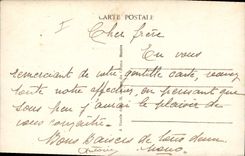 CARTE POSTALE
I
Cher frère
En vous
remerciant de votre gentille carte, recevez
toute notre affection, en pensant que
sous peu j'aurai le plaisir de
vous connaître.
Bons Baisers de tous deux